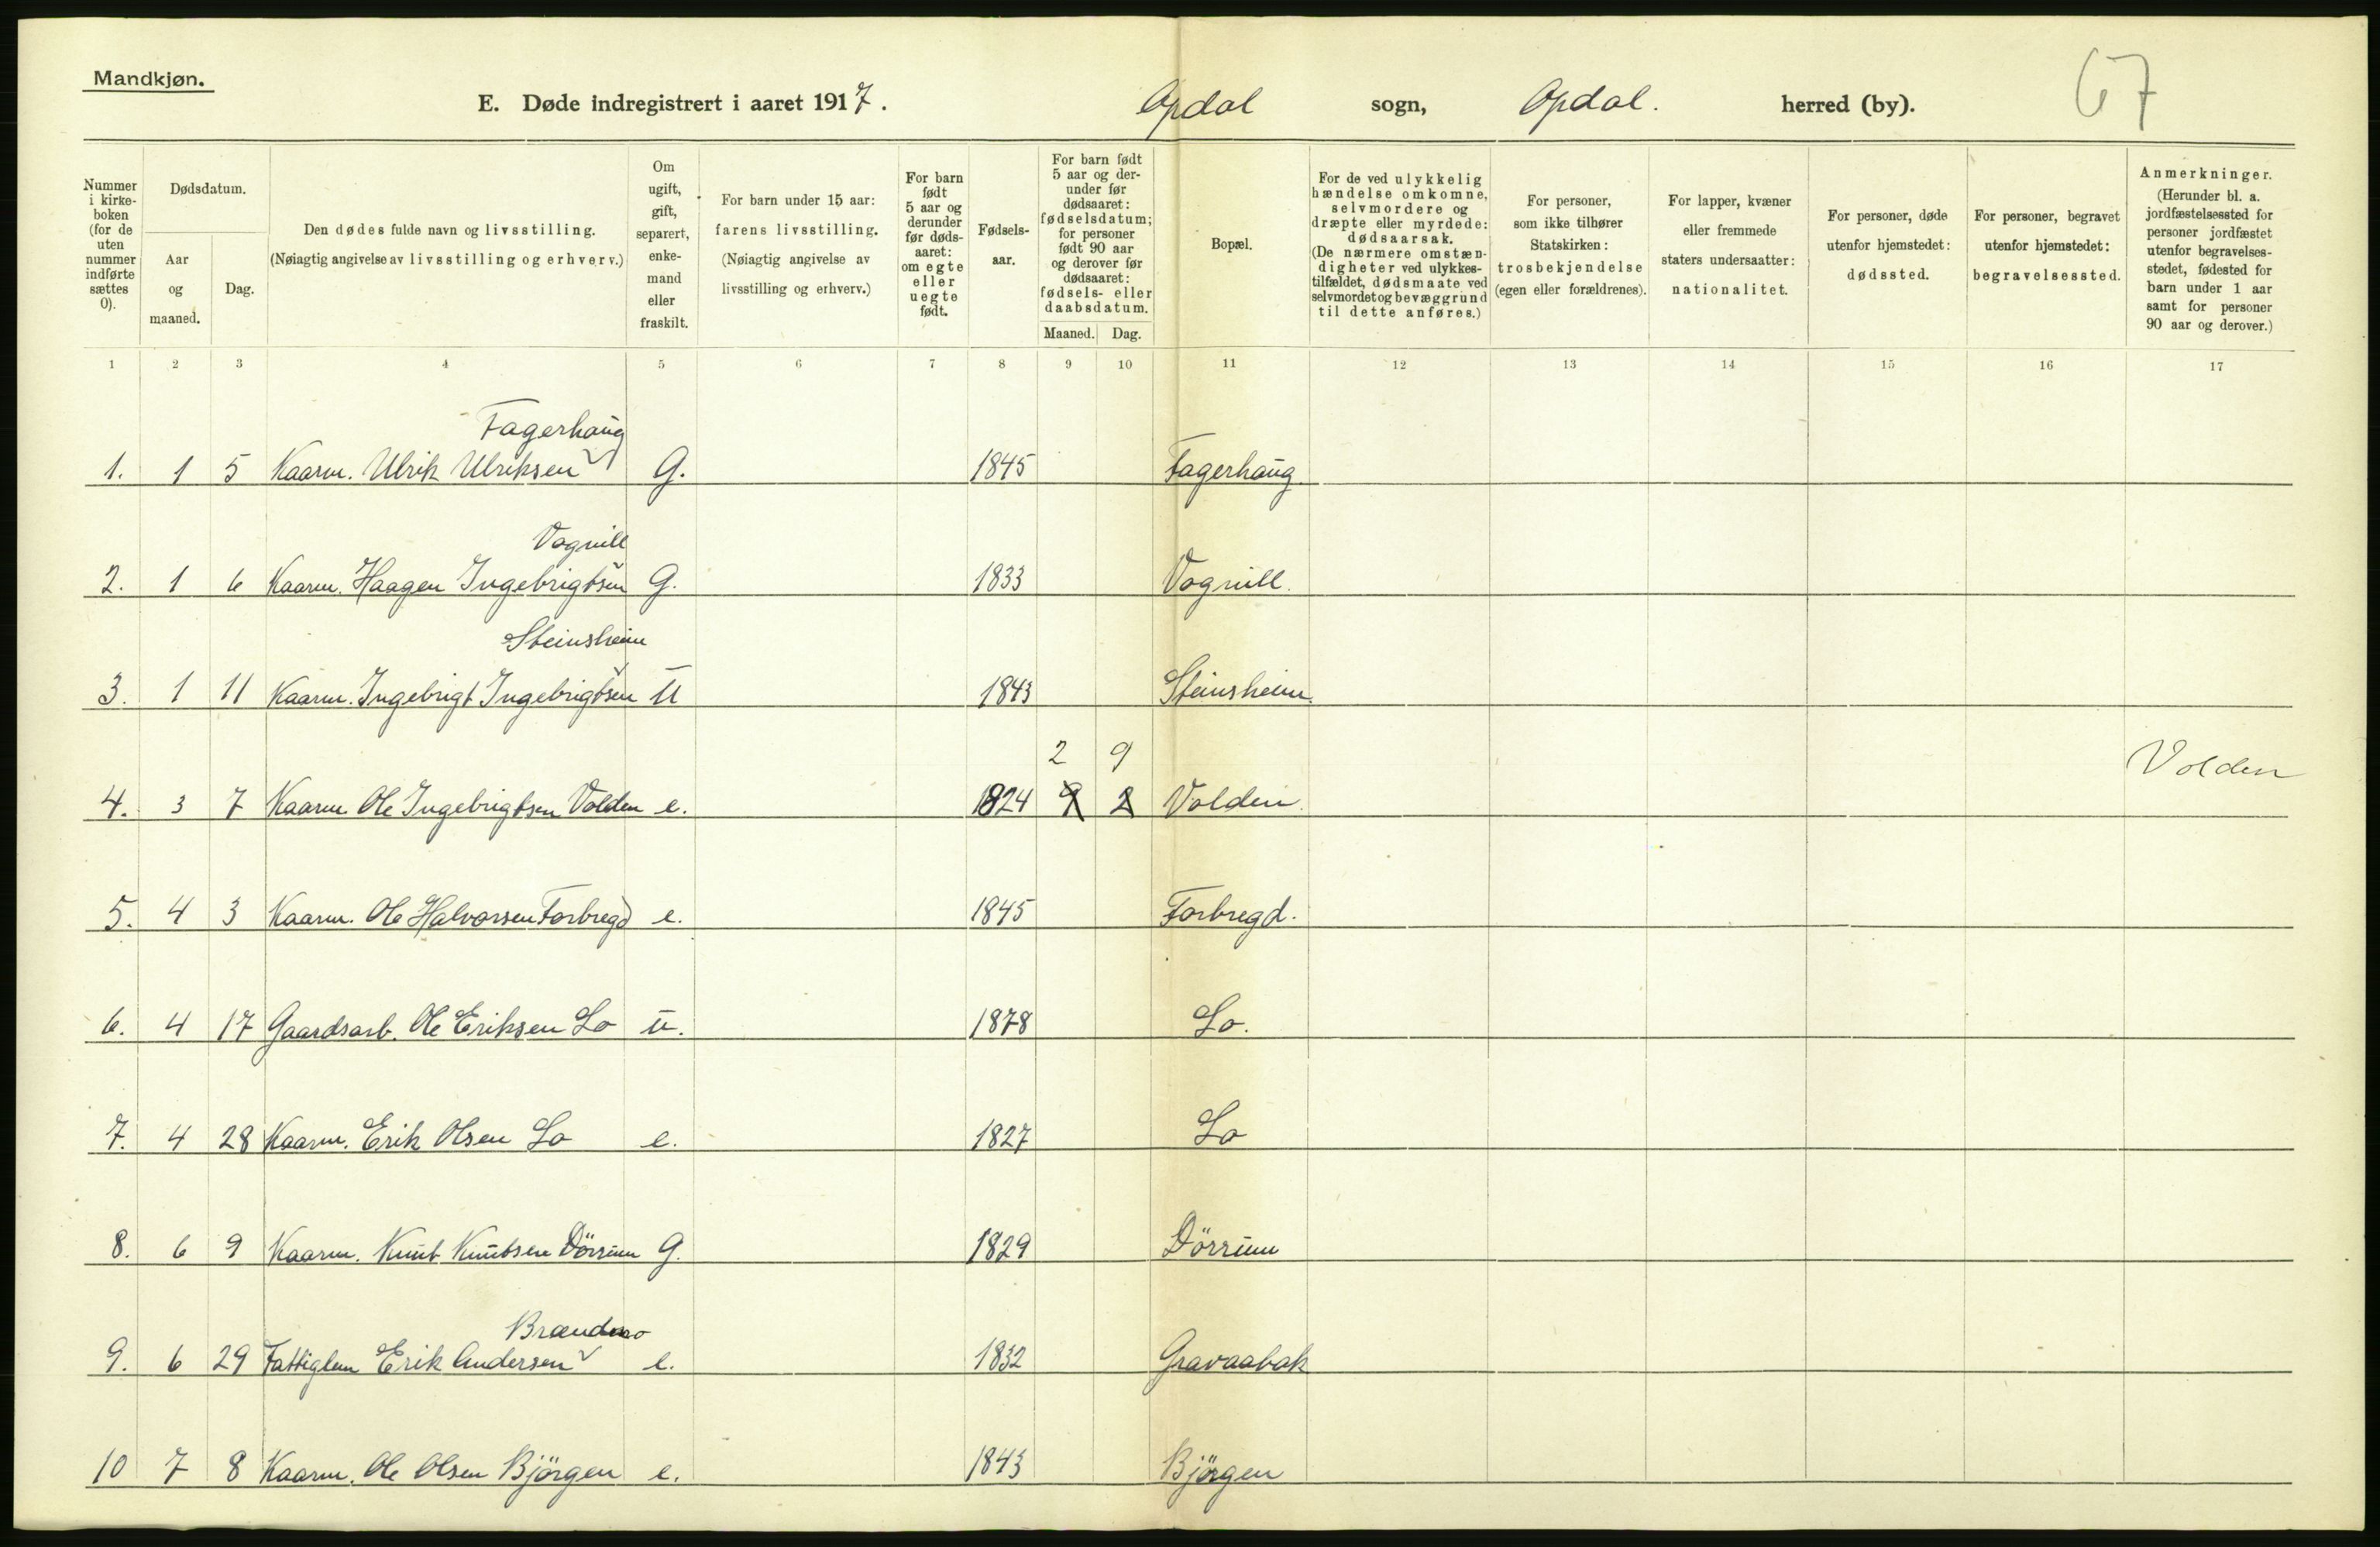 Mandkjøn.
E. Døde indregistrert i aaret 1917. Opdal sogn, Opdal. herred (by). 67
Nummer i kirkeboken (for de uten nummer indførte sættes 0).
Dødsdatum.
Aar og maaned.
Dag.
Den dødes fulde navn og livsstilling.
(Nøiagtig angivelse av livsstilling og erhverv.)
Om ugift, gift, separert, enkemand eller fraskilt.
For barn under 15 aar:
farens livsstilling.
(Nøiagtig angivelse av livsstilling og erhverv.)
For barn født 5 aar og derunder før dødsaaret: om egte eller uegte født.
Fødselsaar.
For barn født 5 aar og derunder før dødsaaret: fødselsdatum; for personer født 90 aar og derover før dødsaaret: fødsels- eller daabsdatum.
Maaned. Dag.
Bopæl.
For de ved ulykkelig hændelse omkomne, selvmordere og dræpte eller myrdede: dødsaarsak.
(De nærmere omstændigheter ved ulykkestilfældet, dødsmaate ved selvmordet og bevæggrund til dette anføres.)
For personer, som ikke tilhører Statskirken: trosbekjendelse (egen eller forældrenes).
For lapper, kvæner eller fremmede staters undersaatter: nationalitet.
For personer, døde utenfor hjemstedet: dødssted.
For personer, begravet utenfor hjemstedet: begravelsessted.
Anmerkninger.
(Herunder bl. a. jordfæstelsessted for personer jordfæstet utenfor begravelsesstedet, fødested for barn under 1 aar samt for personer 90 aar og derover.)
1 2 3 4 5 6 7 8 9 10 11 12 13 14 15 16 17
Fagerhaug
1. 1 5 Kaarm. Ulrik Ulriksen G. 1845 Fagerhaug
Vognill
2. 1 6 Kaarm. Haagen Ingebrigtsen G. 1833 Vognill.
Steinsheim
3. 1 11 Kaarm. Ingebrigt Ingebrigtsen U 1843 Steinsheim.
2 9 Volden
4. 3 7 Kaarm. Ole Ingebrigtsen Volden e. 1824 9 2 Volden.
5. 4 3 Kaarm. Ole Halvorsen Forbregd e. 1845 Forbregd.
6. 4 17 Gaardsarb. Ole Eriksen Lo u. 1878 Lo.
7. 4 28 Kaarm. Erik Olsen Lo e. 1827 Lo
8. 6 9 Kaarm. Knut Knutsen Dörrum G. 1829 Dörrum
Brændmo
9. 6 29 Fattiglem Erik Andersen e. 1832 Gravaabak
10 7 8 Kaarm. Ole Olsen Björgen e. 1843 Björgen